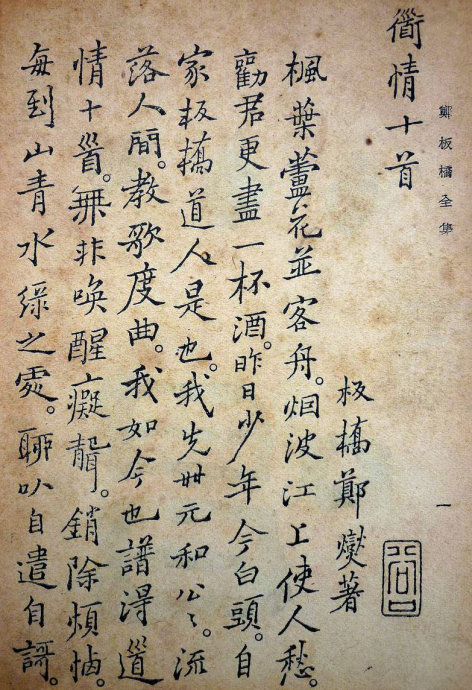 鄭板橋全集
一
衜情十首
板橋鄭燮著
楓葉蘆花並客舟。烟波江上使人愁。
勸君更盡一杯酒。昨日少年今白頭。自
家板橋道人是也。我先世元和公〻。流
落人間。教歌度曲。我如今也譜得道
情十首。無非喚醒癡聾。銷除煩惱。
每到山青水綠之處。聊以自遣自謌。